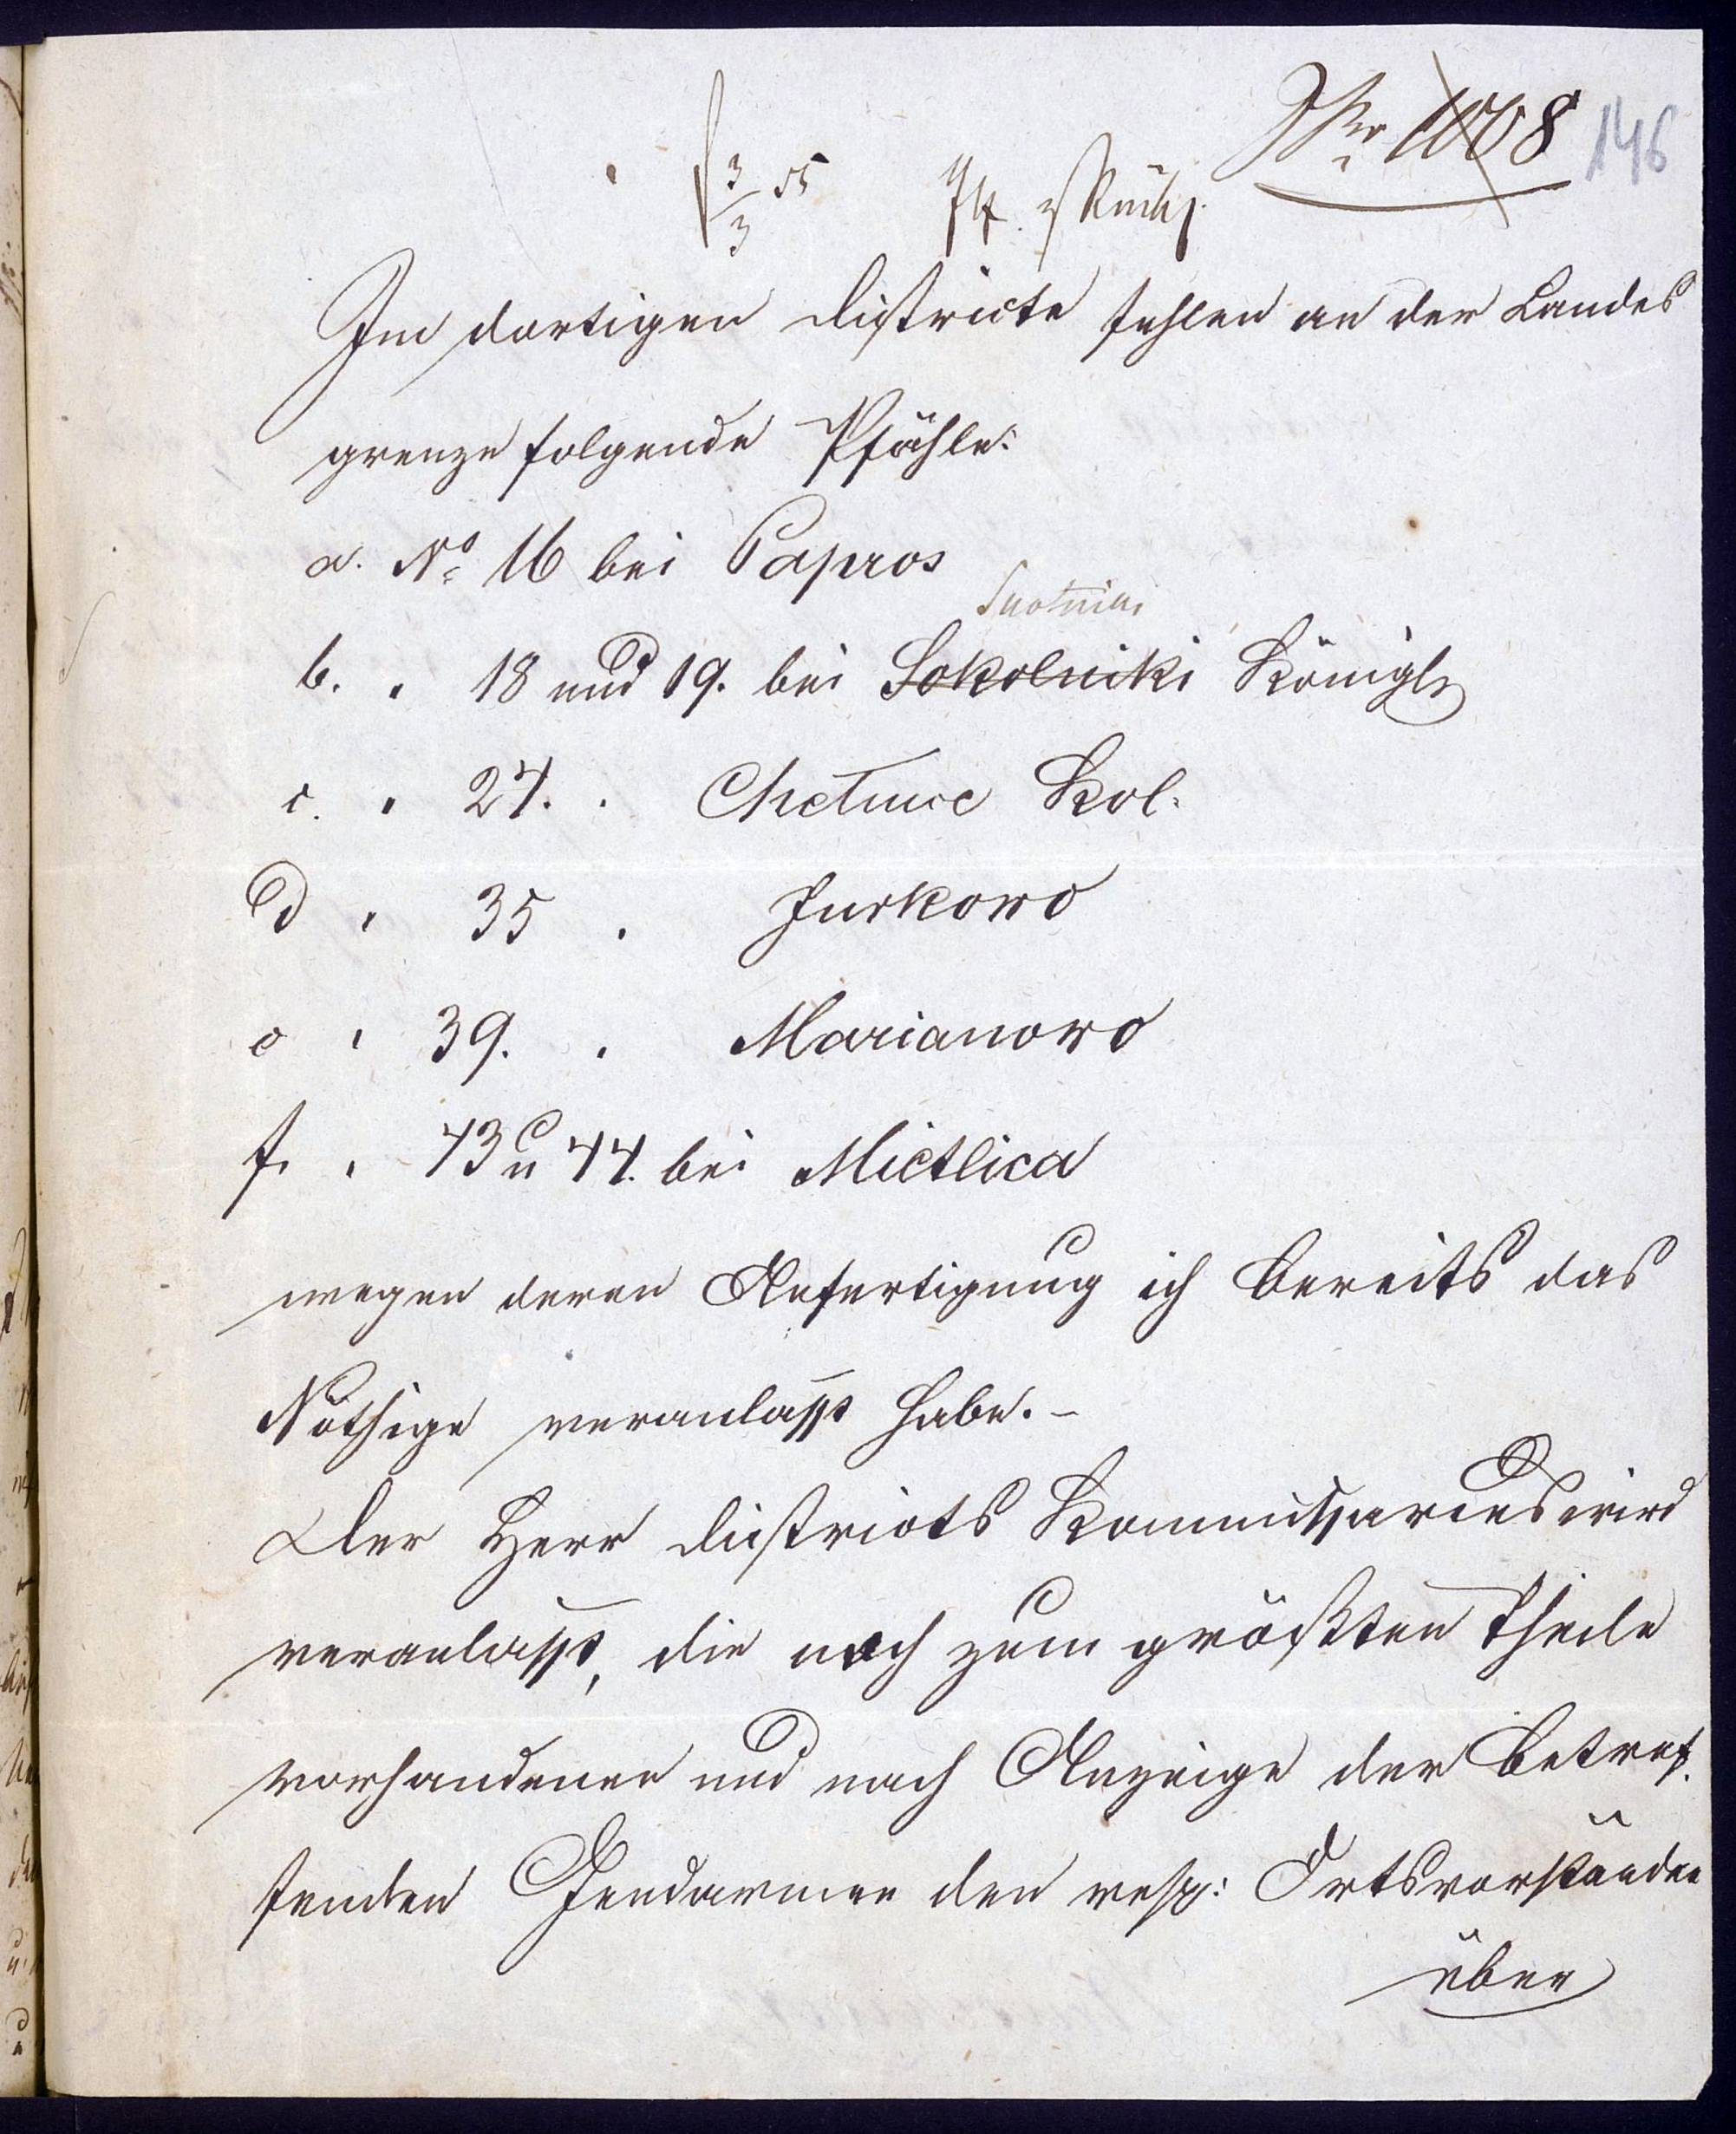 Nr 1008 146
3/3 55
Im dortigen Districte fehlen an der Landes
grenze folgende Pfähle:
a. No 16 bei Papros
Suotniki
b. " 18 und 19. bei Sokolniki Königl
c. " 24. " Chełmce Kol.
d " 35 " Jurkowo
e " 39. " Marianowo
f. " 43 u 44. bei Mietlica
wegen deren Anfertigung ich bereits das
Nöthige veranlaßt habe. -
Der Herr Districts Kommissarius wird
veranlaßt, die noch zum größten Theile
vorhandenen und nach Anzeige der betref
fenden Gendarmen den resp: Ortsvorständen
über